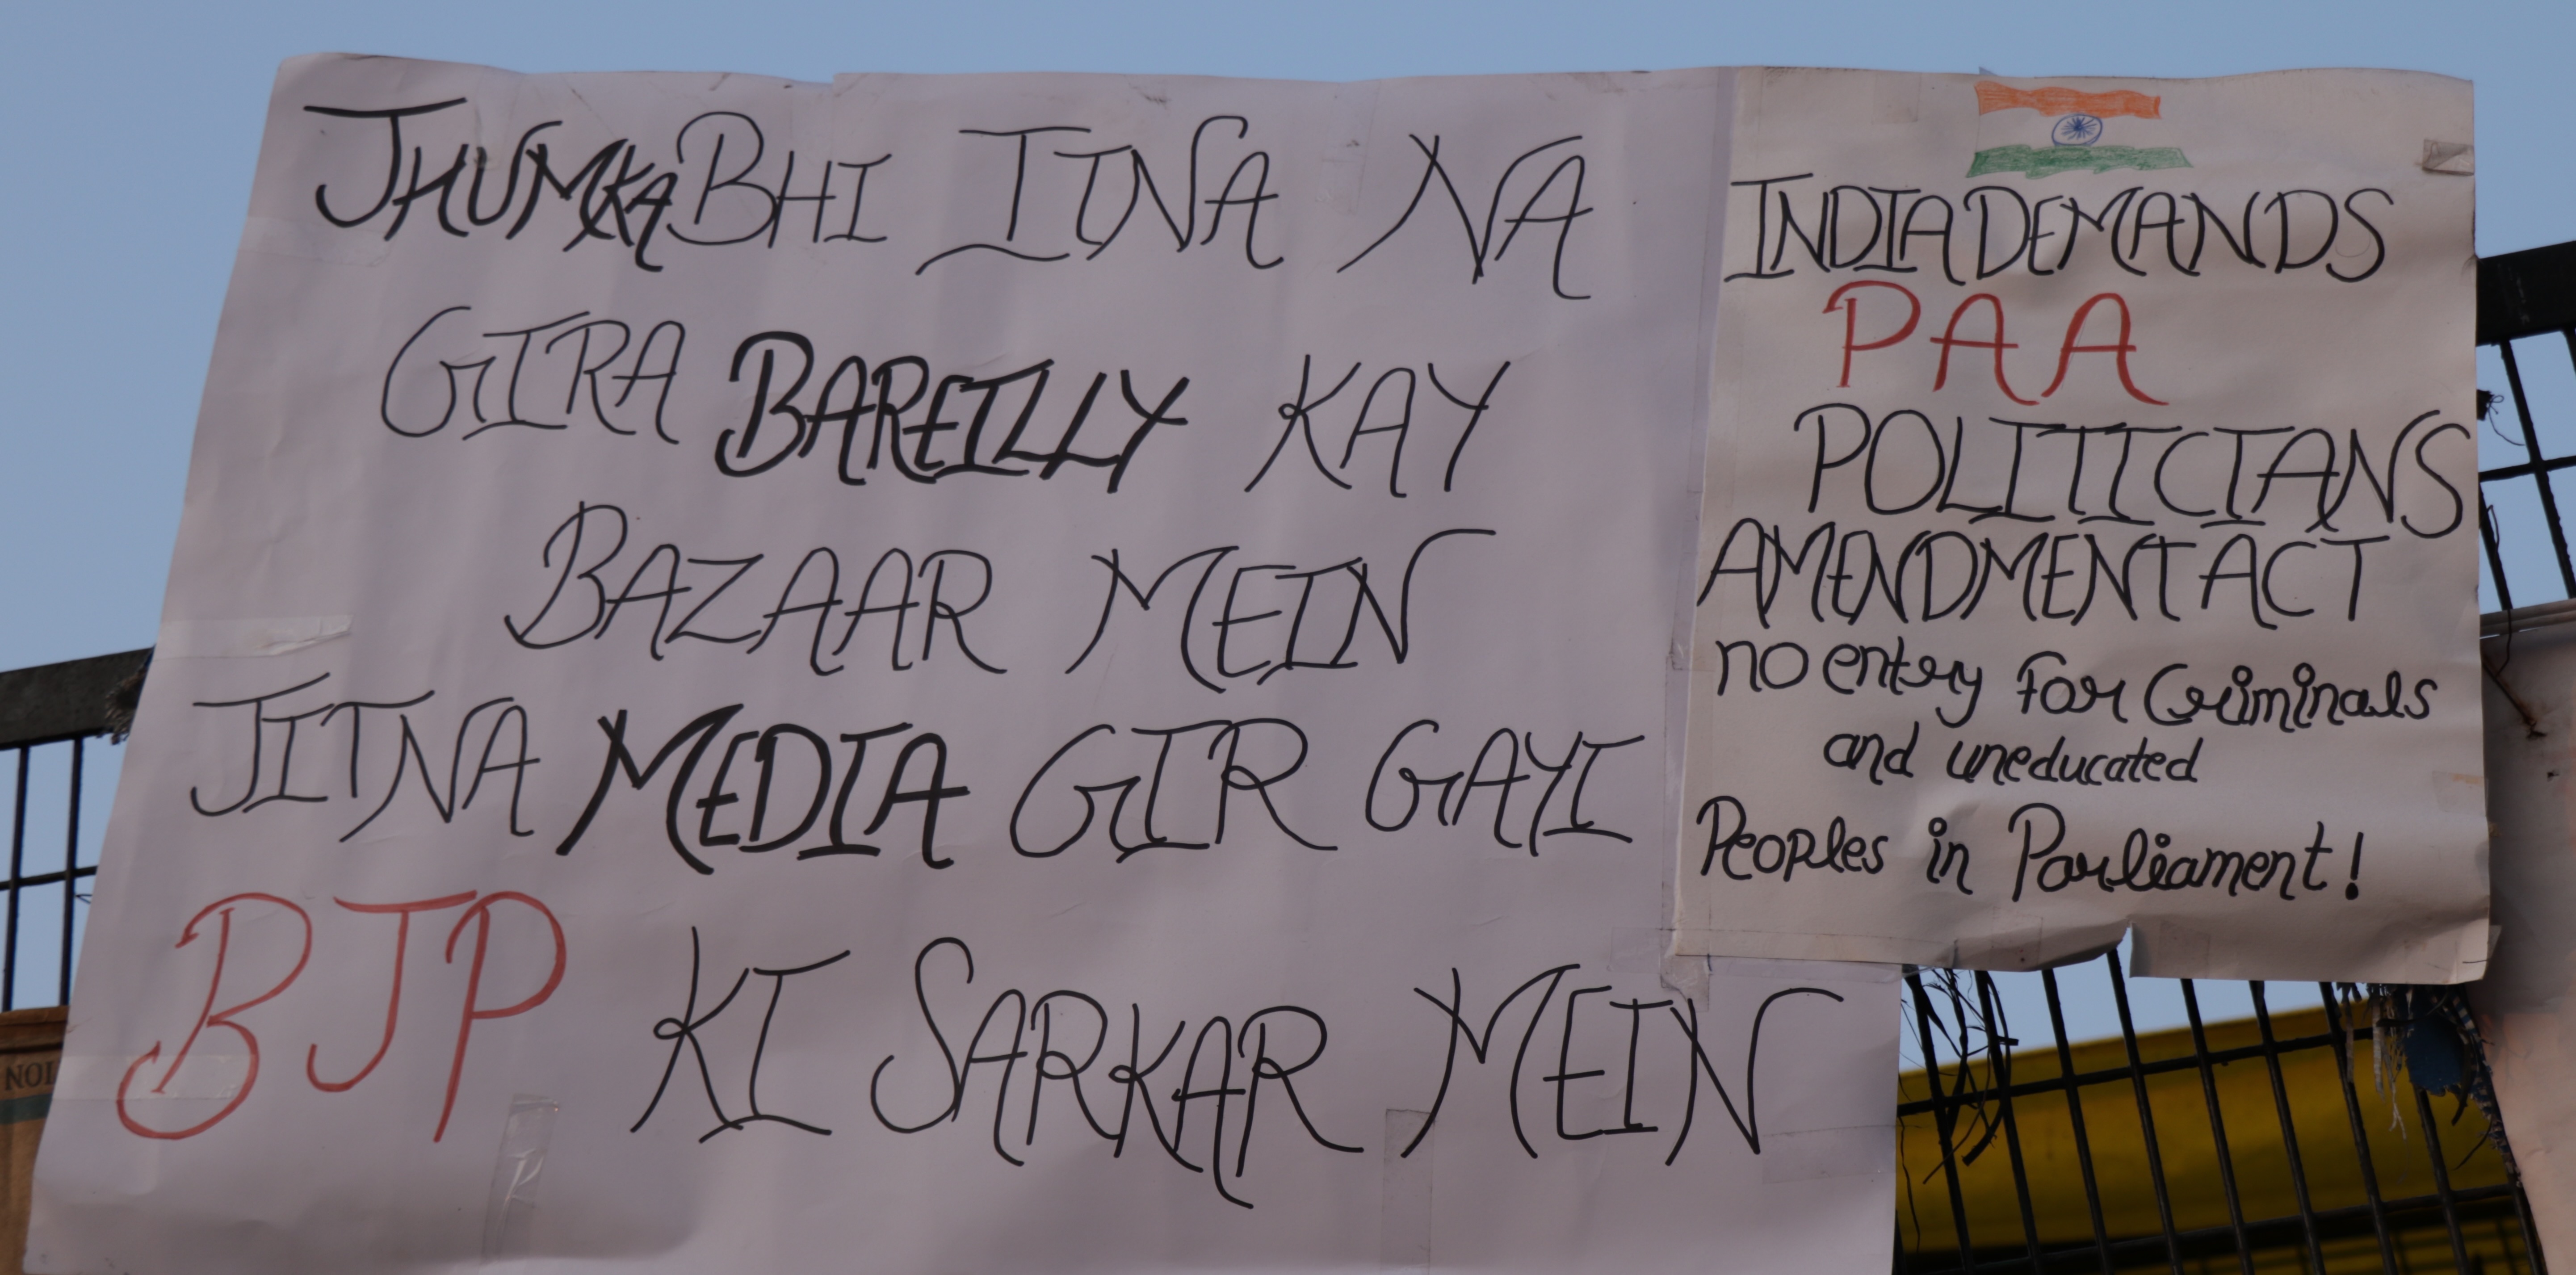 JHUMKA BHI ITNA NA
GIRA BAREILLY KAY
BAZAAR MEIN
JITNA MEDIA GIR GAYI
BJP KI SARKAR MEIN
INDIA DEMANDS
PAA
POLITICIANS
AMENDMENT ACT
no entry for Criminals
and uneducated
Peoples in Parliament!
NOI